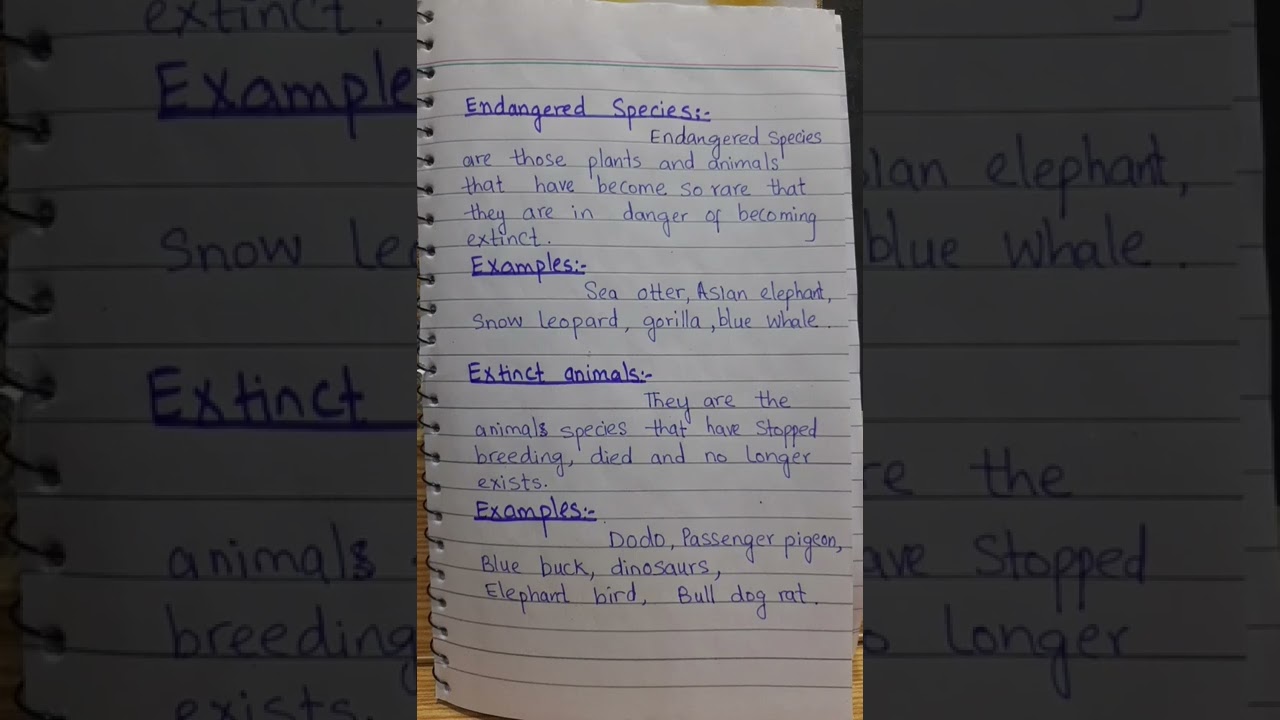 Endangered Species:-
Endangered Species
are those plants and animals
that have become so rare that
they are in danger of becoming
extinct.
Examples:-
Sea otter, Asian elephant,
Snow leopard, gorilla, blue whale.
Extinct animals:-
They are the
animals species that have Stopped
breeding, died and no longer
exists.
Examples:-
Dodo, Passenger pigeon,
Blue buck, dinosaurs,
Elephant bird, Bull dog rat.